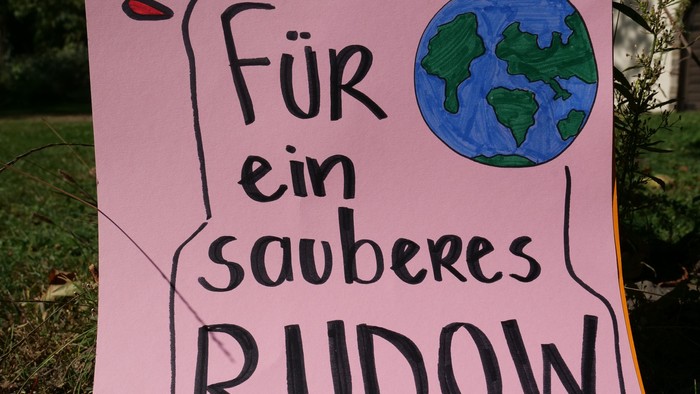 FÜR
ein
sauberes
RUDOW